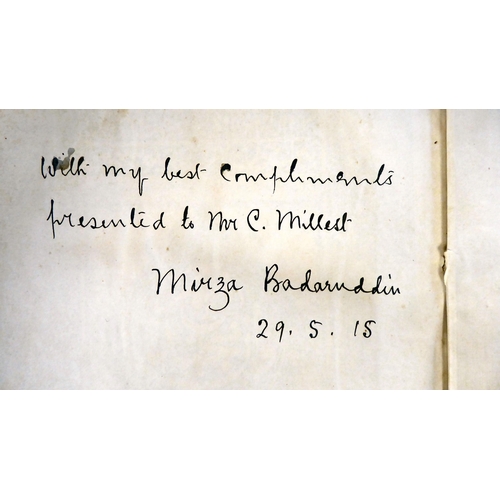 With my best compliments
presented to Mr C. Millest
Mirza Badaruddin
29. 5. 15